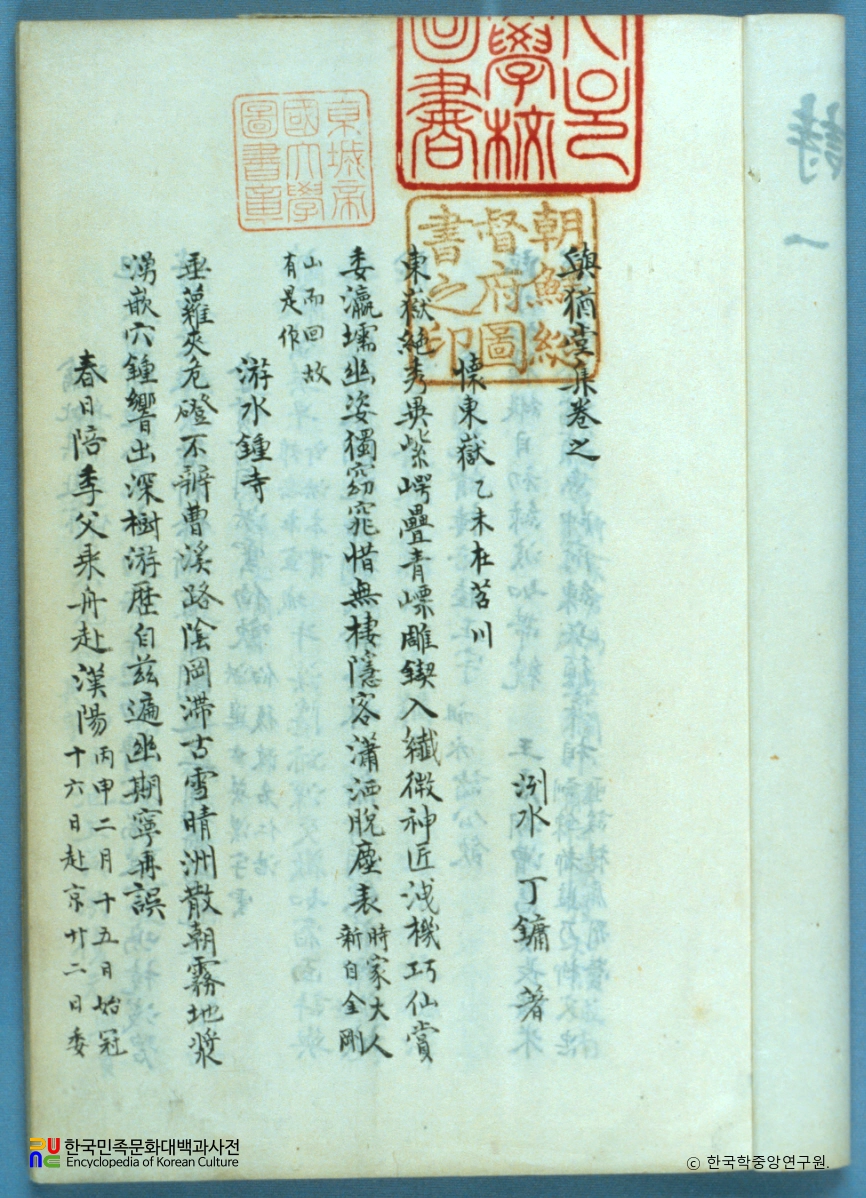 詩 一
與猶堂集卷之
洌水 丁鏞 著
懷東嶽 乙未在苕川
東嶽絶秀異紫崿疊青嶂雕鍥入纖微神匠洩機巧仙賞
委瀛壖幽姿獨窈窕惜無棲隱客瀟洒脫塵表 時家大人
新自金剛
山而回故
有是作
游水鍾寺
垂蘿夾危磴不辨曹溪路陰岡滯古雪晴洲散朝霧地漿
湧嵌穴鍾響出深樹游歷自茲遍幽期寧再誤
春日陪季父乘舟赴漢陽 丙申二月十五日始冠
十六日赴京廿二日委
學校
圖書
朝鮮總
督府圖
書之印
京城帝
國大學
圖書章
한국민족문화대백과사전
Encyclopedia of Korean Culture
ⓒ 한국학중앙연구원.